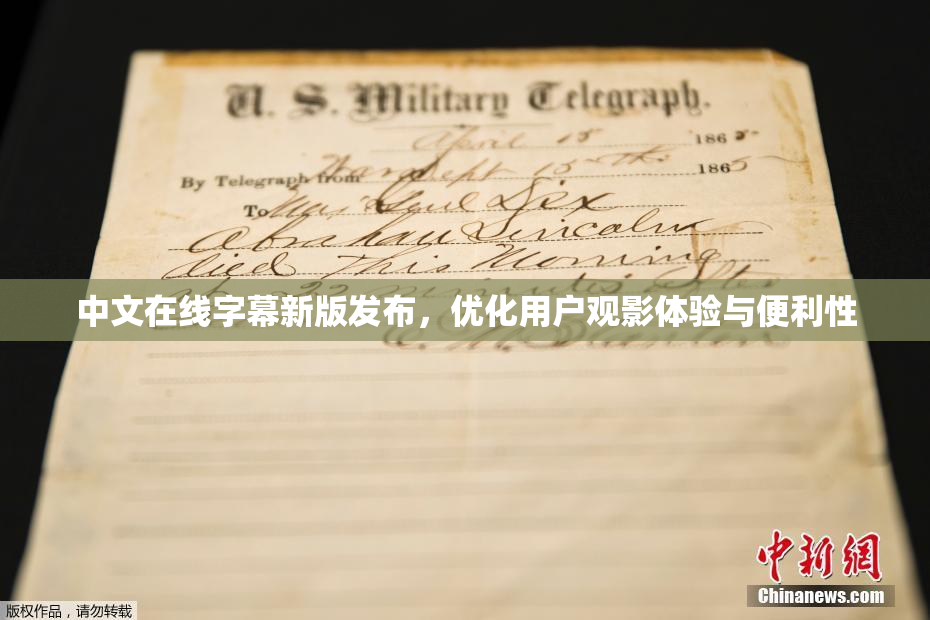 U. S. Military Telegraph.
April 15 1865
By Telegraph from War Dept 15th 1865
To Maj Genl Dix
Abraham Lincoln
died This Morning
22 minutes after
中文在线字幕新版发布，优化用户观影体验与便利性
E. M. Stanton
中新網
Chinanews.com
版权作品，请勿转载